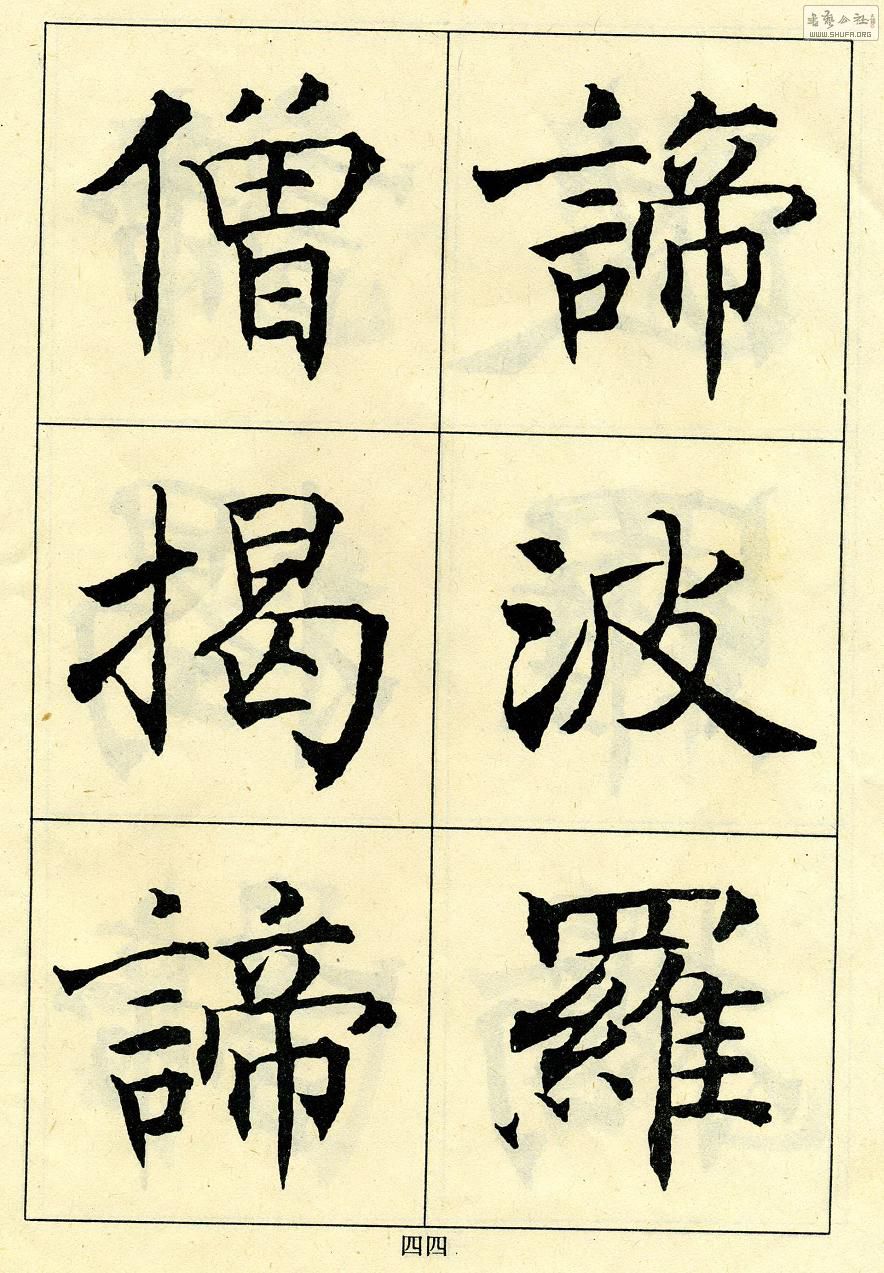 諦波羅
僧揭諦
四四
書藝公社
WWW.SHUFA.ORG